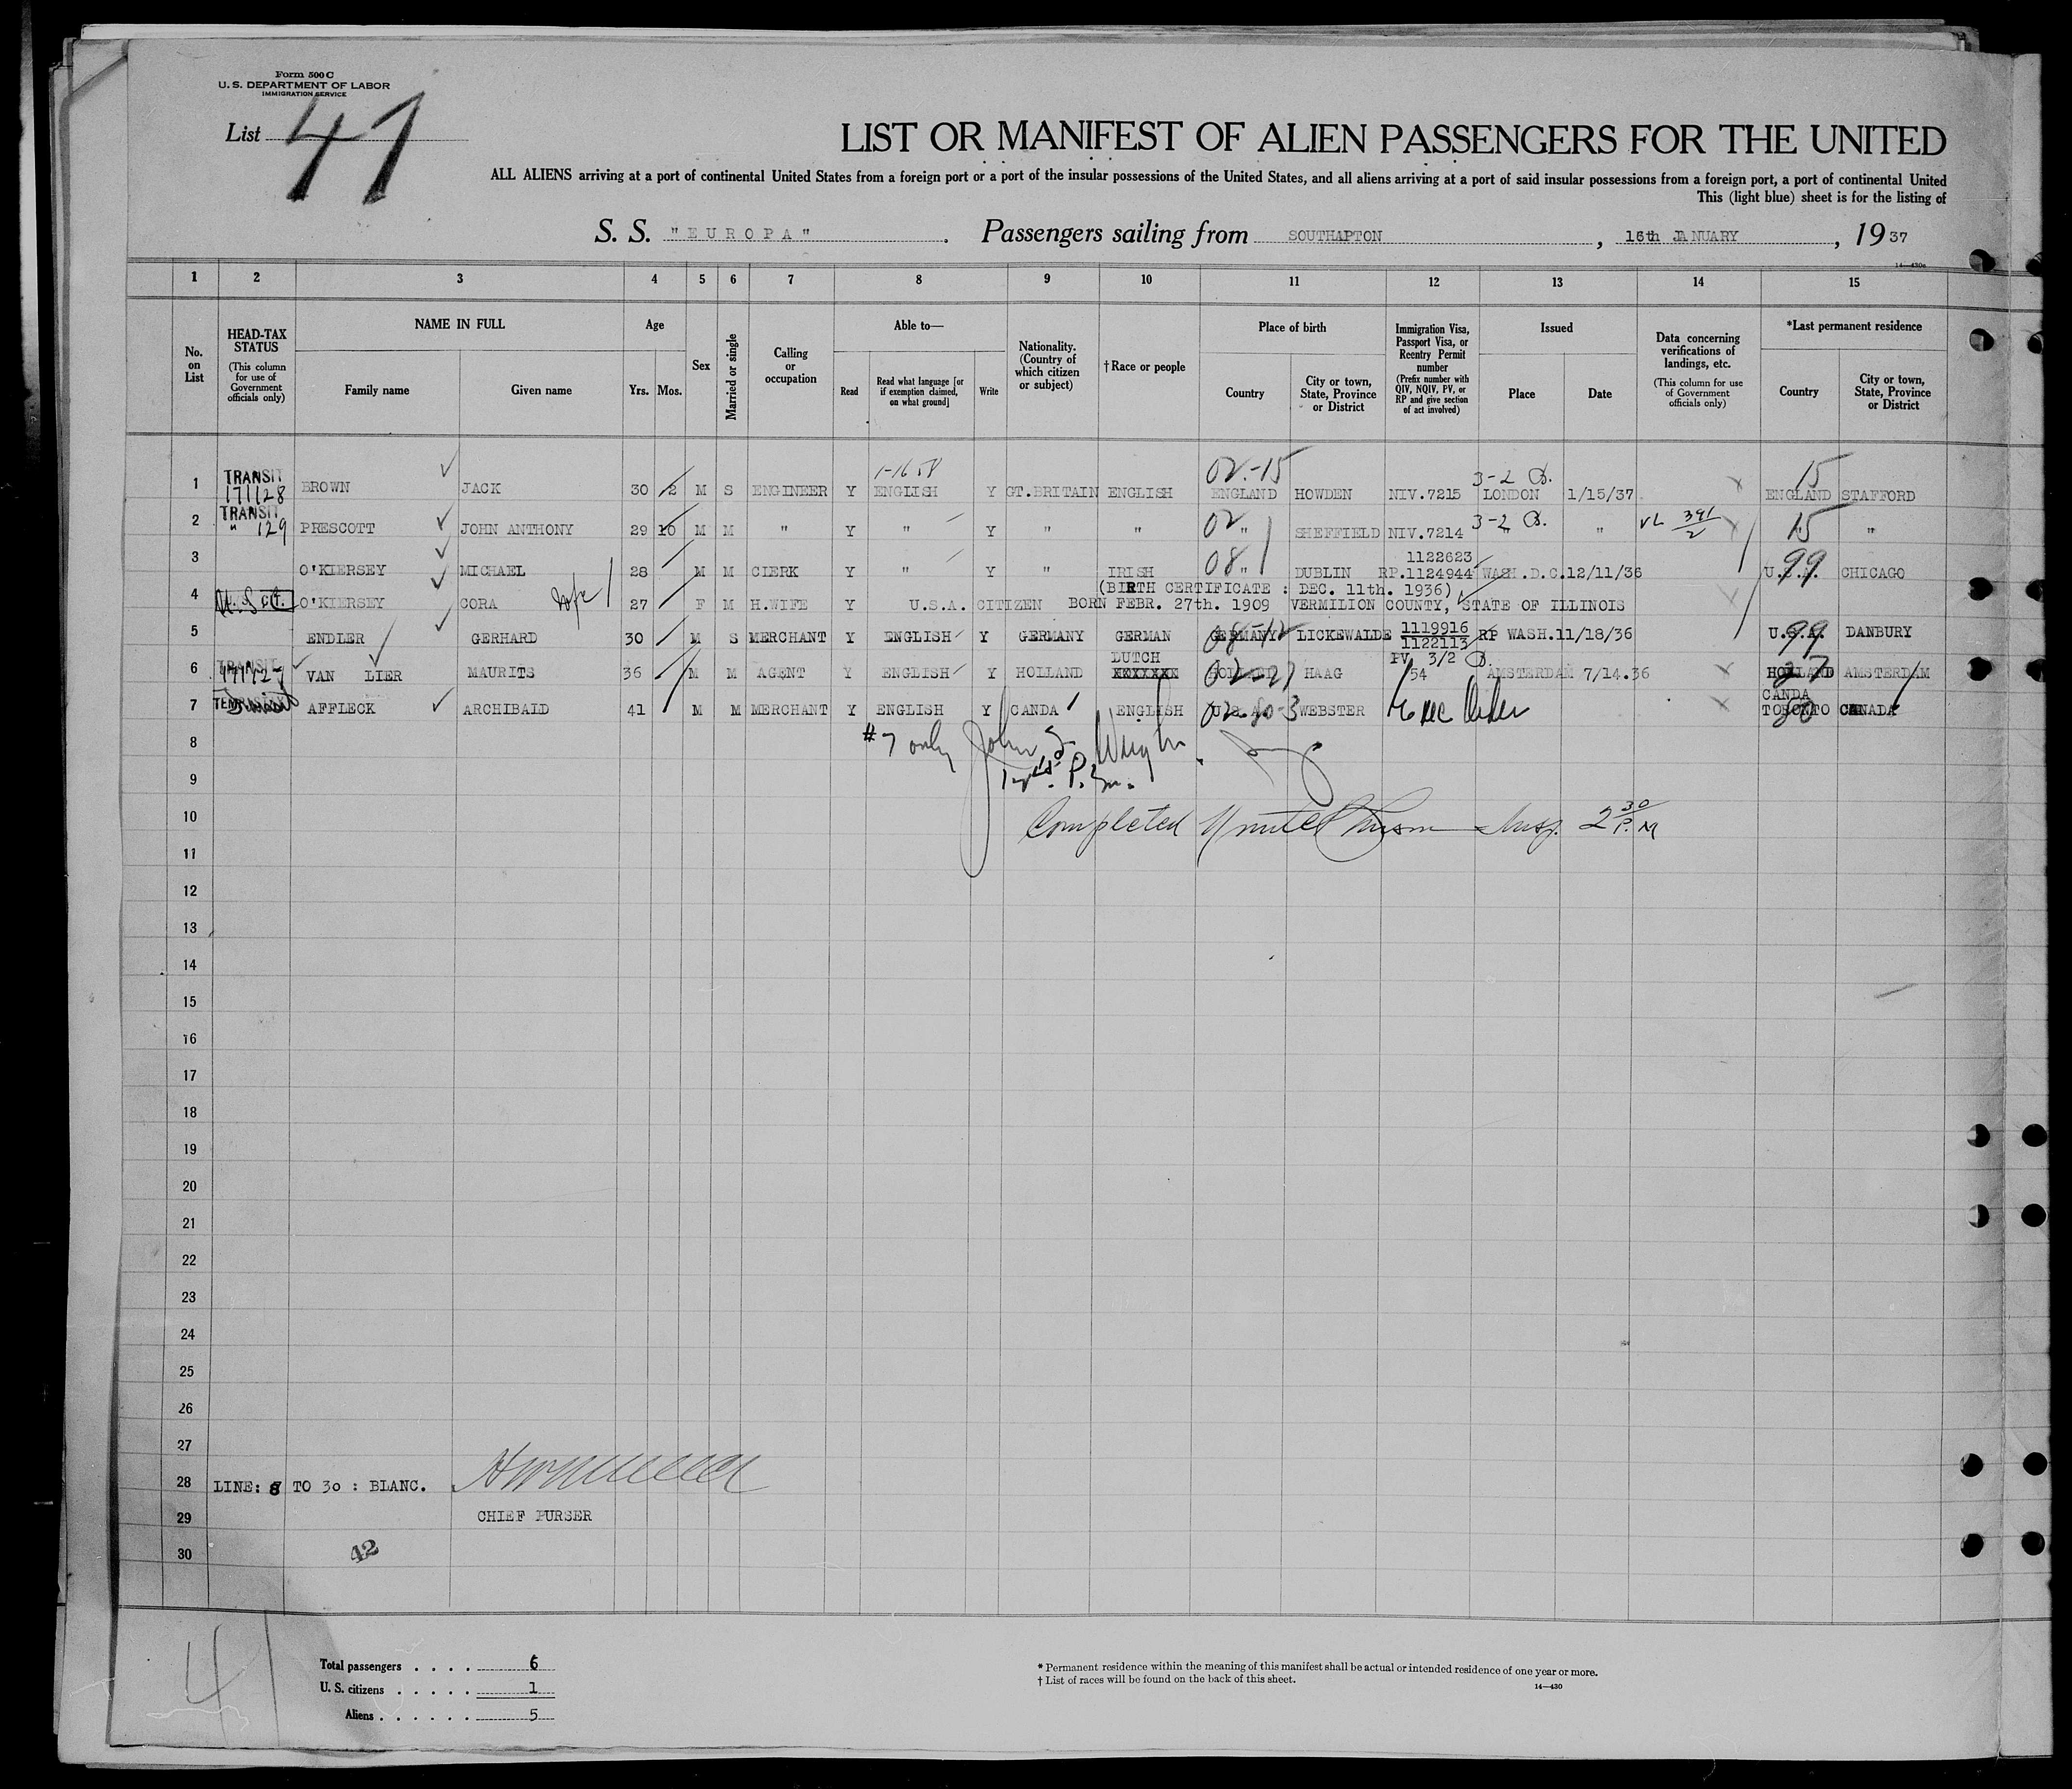 Form 500 C
U. S. DEPARTMENT OF LABOR
IMMIGRATION SERVICE
List 47
LIST OR MANIFEST OF ALIEN PASSENGERS FOR THE UNITED
ALL ALIENS arriving at a port of continental United States from a foreign port or a port of the insular possessions of the United States, and all aliens arriving at a port of said insular possessions from a foreign port, a port of continental United
This (light blue) sheet is for the listing of
S. S. "EUROPA" . Passengers sailing from SOUTHAPTON , 16th JANUARY , 1937
14—430c
1 2 3 4 5 6 7 8 9 10 11 12 13 14 15
No. on List
HEAD-TAX STATUS (This column for use of Government officials only)
NAME IN FULL Family name Given name
Age Yrs. Mos.
Sex
Married or single
Calling or occupation
Able to— Read Read what language [or if exemption claimed, on what ground] Write
Nationality. (Country of which citizen or subject)
†Race or people
Place of birth Country City or town, State, Province or District
Immigration Visa, Passport Visa, or Reentry Permit number (Prefix number with QIV, NQIV, PV, or RP and give section of act involved)
Issued Place Date
Data concerning verifications of landings, etc. (This column for use of Government officials only)
*Last permanent residence Country City or town, State, Province or District
TRANSIT 02-15 3-2 15
1 171128 BROWN JACK 30 2 M S ENGINEER Y ENGLISH Y GT.BRITAIN ENGLISH ENGLAND HOWDEN NIV.7215 LONDON 1/15/37 ENGLAND STAFFORD
TRANSIT 02 3-2 15
2 " 129 PRESCOTT JOHN ANTHONY 29 10 M M " Y " Y " " " SHEFFIELD NIV.7214 " " VL 391/2 " "
08 1122623 99
3 O'KIERSEY MICHAEL 28 M M CLERK Y " Y " IRISH " DUBLIN RP.1124944 WASH.D.C.12/11/36 U.S.A. CHICAGO
(BIRTH CERTIFICATE : DEC. 11th. 1936)
4 U. S. Ct. O'KIERSEY CORA wife 27 F M H.WIFE Y U.S.A. CITIZEN BORN FEBR. 27th. 1909 VERMILION COUNTY, STATE OF ILLINOIS
5 ENDLER GERHARD 30 M S MERCHANT Y ENGLISH Y GERMANY GERMAN GERMANY 08-12 LICKEWALDE 1119916 1122113 RP WASH.11/18/36 U.S.A. 99 DANBURY
TRANSIT DUTCH PV 3/2
6 171127 VAN LIER MAURITS 36 M M AGENT Y ENGLISH Y HOLLAND XXXXXXX HOLLAND HAAG 54 AMSTERDAM 7/14.36 HOLLAND 27 AMSTERDAM
CANDA
7 AFFLECK ARCHIBALD 41 M M MERCHANT Y ENGLISH Y CANDA ENGLISH U.S.A. WEBSTER Exec Order TORONTO CANADA
8 #7 only John S.
9
10 Completed Insp. 2 30 P.M
11
12
13
14
15
16
17
18
19
20
21
22
23
24
25
26
27
28 LINE: 8 TO 30 : BLANC.
29 CHIEF PURSER
30 42
41
Total passengers . . . . 6
U. S. citizens . . . . . 1
Aliens . . . . . . 5
* Permanent residence within the meaning of this manifest shall be actual or intended residence of one year or more.
† List of races will be found on the back of this sheet.
14—430